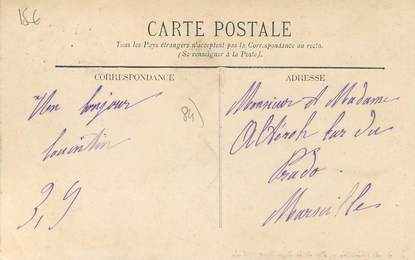 156
CARTE POSTALE
Tous les Pays étrangers n'acceptent pas la Correspondance au recto.
(Se renseigner à la Poste).
CORRESPONDANCE
ADRESSE
Un bonjour
3, 9
84)
Monsieur et Madame
du
Prado
Marseille